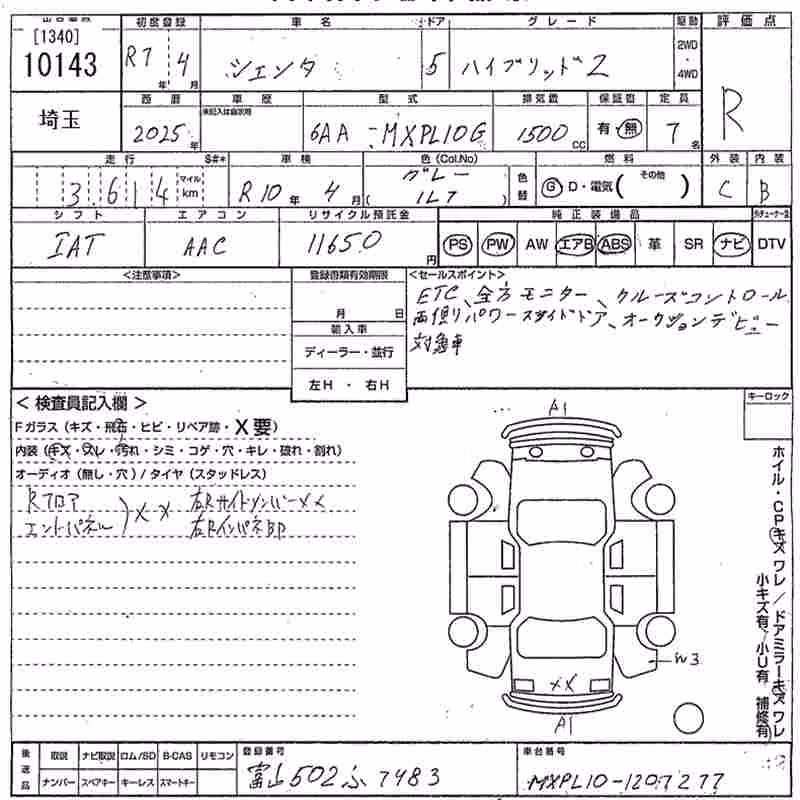 [1340]
10143
初度登録
R7年 4月
車名
シエンタ
ドア
5
グレード
ハイブリッドZ
駆動
2WD
・
4WD
評価点
R
埼玉
西暦
2025年
車歴
未記入は自家用
型式
6AA-MXPL10G
排気量
1500cc
保証書
有・無
定員
7名
走行
3,614
マイル
km
S#*
車検
R10年 4月
色(Col.No)
グレー
(1L7)
色替
燃料
G D・電気( その他 )
外装
C
内装
B
シフト
IAT
エアコン
AAC
リサイクル預託金
11650円
純正装備品
PS PW AW エアB ABS 革 SR ナビ DTV
<注意事項>
登録書類有効期限
月 日
輸入車
ディーラー・並行
左H ・ 右H
<セールスポイント>
ETC、全方モニター、クルーズコントロール
両側リパワースライドドア、オークションデビュー
対象車
<検査員記入欄>
Fガラス(キズ・飛石・ヒビ・リペア跡・X要)
内装(キズ・スレ・汚れ・シミ・コゲ・穴・キレ・破れ・割れ)
オーディオ(無し・穴)/タイヤ(スタッドレス)
Rフロア
エンドパネル
)XX
右Rサイドメンバー XX
右Rインパネ即
A1
XX
W3
A1
キーロック
ホイル・CPキズ ワレ/ドアミラーキズ ワレ
小キズ有、小U有 補修有
後送品
取説 ナビ取説 ロム/SD B-CAS リモコン
ナンバー スペアキー キーレス スマートキー
登録番号
富山502ふ7483
車台番号
MXPL10-1207277